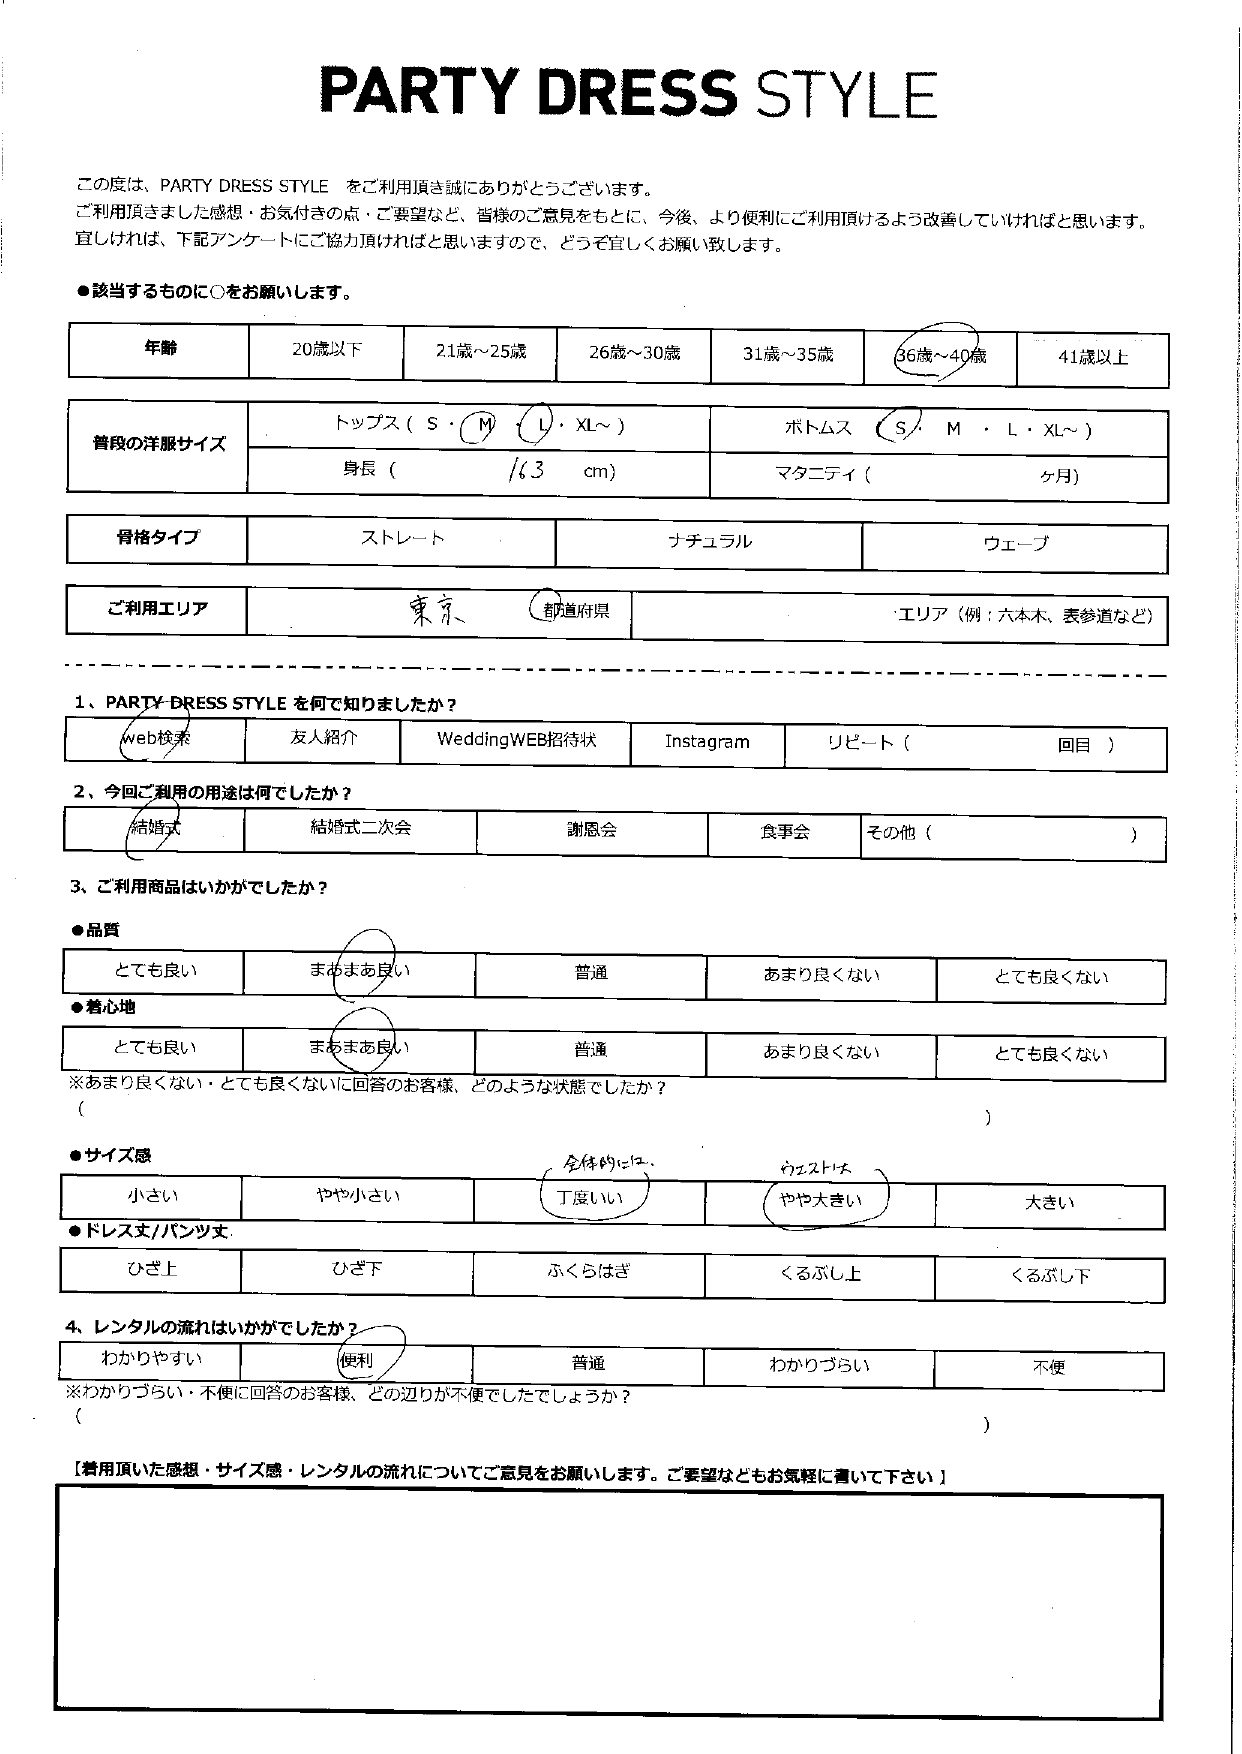 PARTY DRESS STYLE
この度は、PARTY DRESS STYLE をご利用頂き誠にありがとうございます。
ご利用頂きました感想・お気付きの点・ご要望など、皆様のご意見をもとに、今後、より便利にご利用頂けるよう改善していければと思います。
宜しければ、下記アンケートにご協力頂ければと思いますので、どうぞ宜しくお願い致します。
●該当するものに○をお願いします。
年齢 20歳以下 21歳～25歳 26歳～30歳 31歳～35歳 36歳～40歳 41歳以上
普段の洋服サイズ トップス ( S ・ M ・ L ・ XL～ ) ボトムス ( S ・ M ・ L ・ XL～ )
身長 ( 163 cm) マタニティ ( ヶ月)
骨格タイプ ストレート ナチュラル ウェーブ
ご利用エリア 東京 都道府県 エリア（例：六本木、表参道など）
1、PARTY DRESS STYLE を何で知りましたか？
web検索 友人紹介 WeddingWEB招待状 Instagram リピート ( 回目 )
2、今回ご利用の用途は何でしたか？
結婚式 結婚式二次会 謝恩会 食事会 その他 ( )
3、ご利用商品はいかがでしたか？
●品質
とても良い まあまあ良い 普通 あまり良くない とても良くない
●着心地
とても良い まあまあ良い 普通 あまり良くない とても良くない
※あまり良くない・とても良くないに回答のお客様、どのような状態でしたか？
( )
●サイズ感
全体的には、 ウエストは
小さい やや小さい 丁度いい やや大きい 大きい
●ドレス丈/パンツ丈
ひざ上 ひざ下 ふくらはぎ くるぶし上 くるぶし下
4、レンタルの流れはいかがでしたか？
わかりやすい 便利 普通 わかりづらい 不便
※わかりづらい・不便に回答のお客様、どの辺りが不便でしたでしょうか？
( )
【着用頂いた感想・サイズ感・レンタルの流れについてご意見をお願いします。ご要望などもお気軽に書いて下さい 】